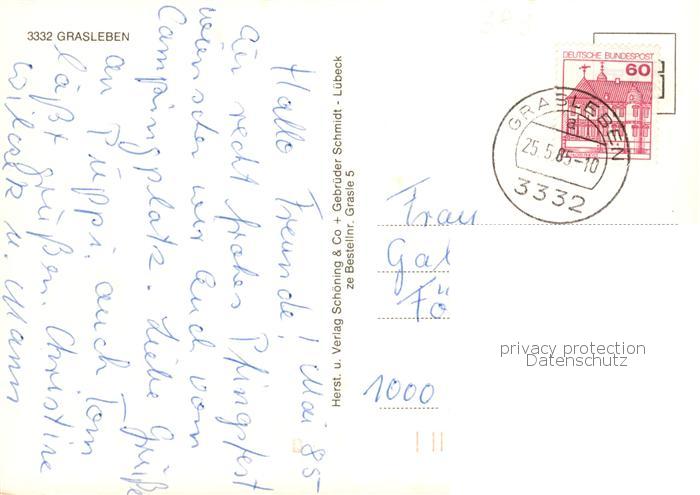 3332 GRASLEBEN
Hallo Freunde! Mai 85
Ein recht frohes Pfingstfest
wünschen wir Euch vom
Campingplatz. Liebe Grüße
an Puppi, auch Tom
läßt grüßen. Christine
u. Mann
Herst. u. Verlag Schöning & Co + Gebrüder Schmidt - Lübeck
ze Bestellnr. Grasle 5
DEUTSCHE BUNDESPOST
60
GRASLEBEN
a
25.5.85-10
3332
Frau
Gal
Fö
1000
privacy protection
Datenschutz